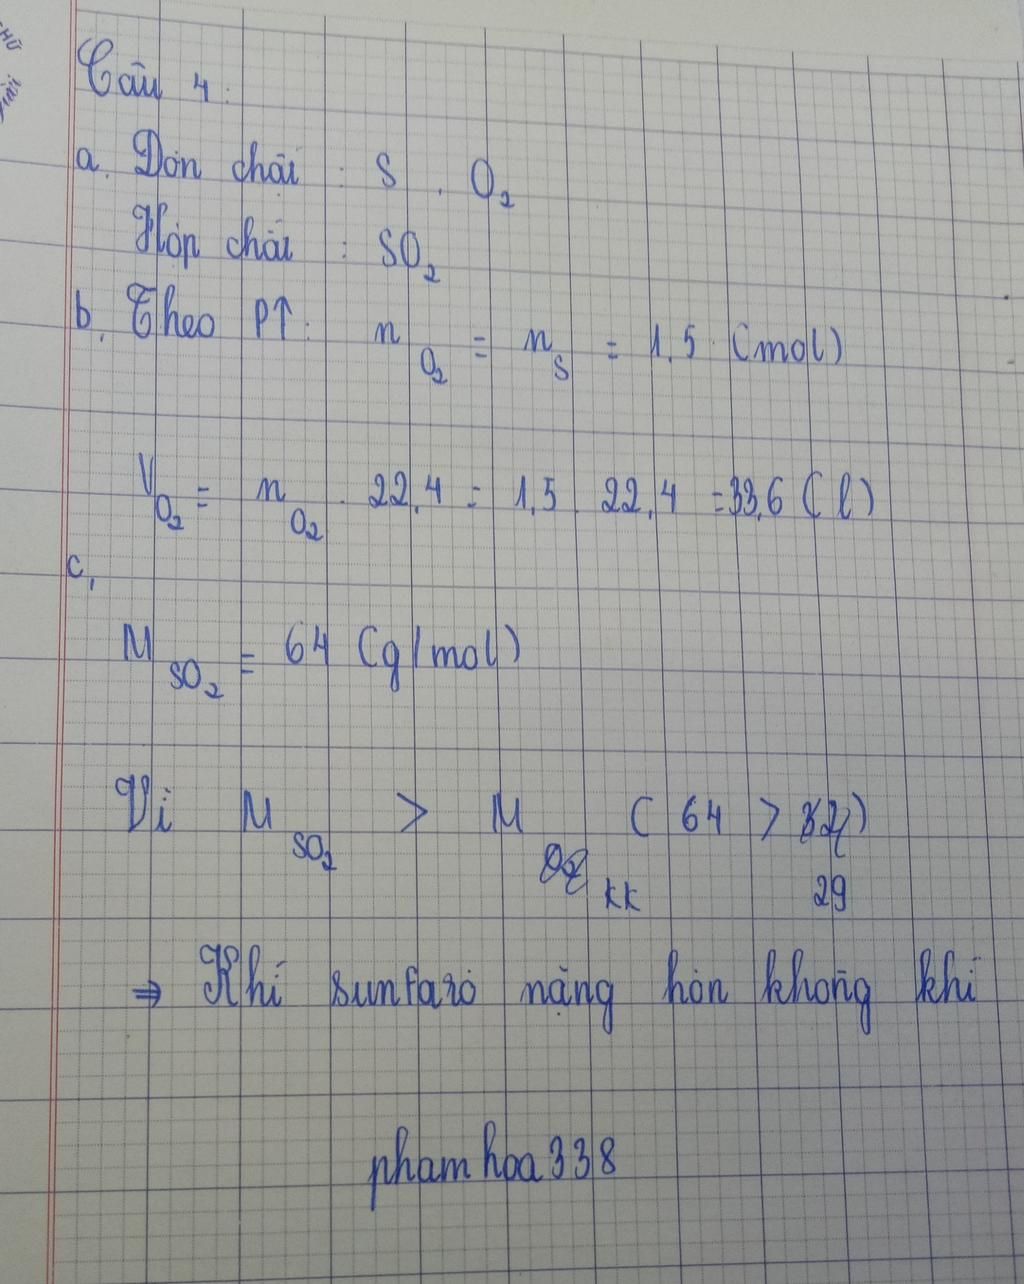 Câu 4:
a. Đơn chất : S , O2
Hợp chất : SO2
b, Theo PT: n O2 = n S = 1,5 (mol)
V O2 = n O2 . 22,4 = 1,5 . 22,4 = 33,6 (l)
c,
M SO2 = 64 (g/mol)
Vì M SO2 > M kk ( 64 > 29 )
⇒ Khí sunfarơ nặng hơn không khí
phamhoa338